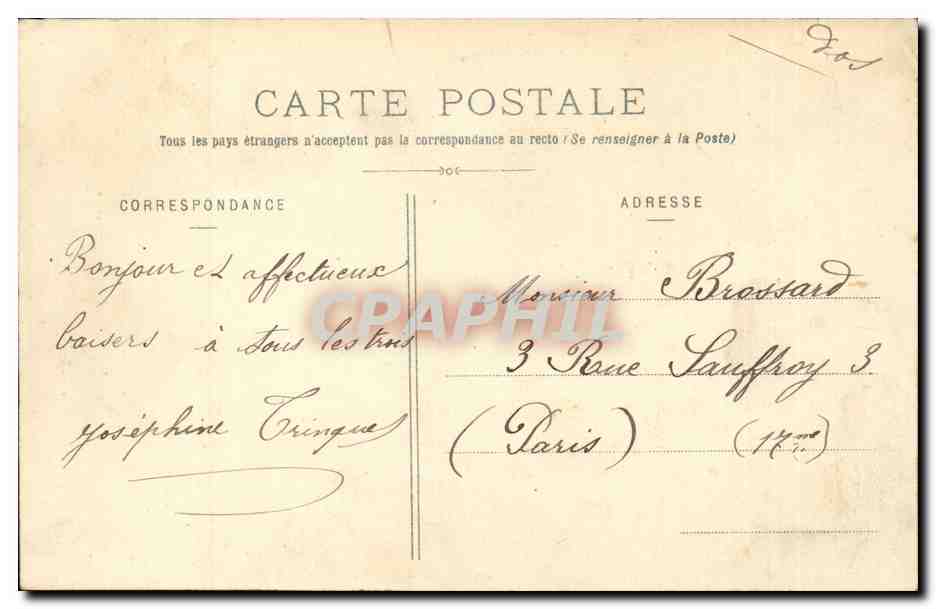 dos
CARTE POSTALE
Tous les pays étrangers n'acceptent pas la correspondance au recto (Se renseigner à la Poste)
CORRESPONDANCE
Bonjour et affectueux
baisers à tous les trois
Joséphine Trinque
ADRESSE
Monsieur Brossard
3 Rue Sauffroy 3.
(Paris) (17me)
CPAPHIL